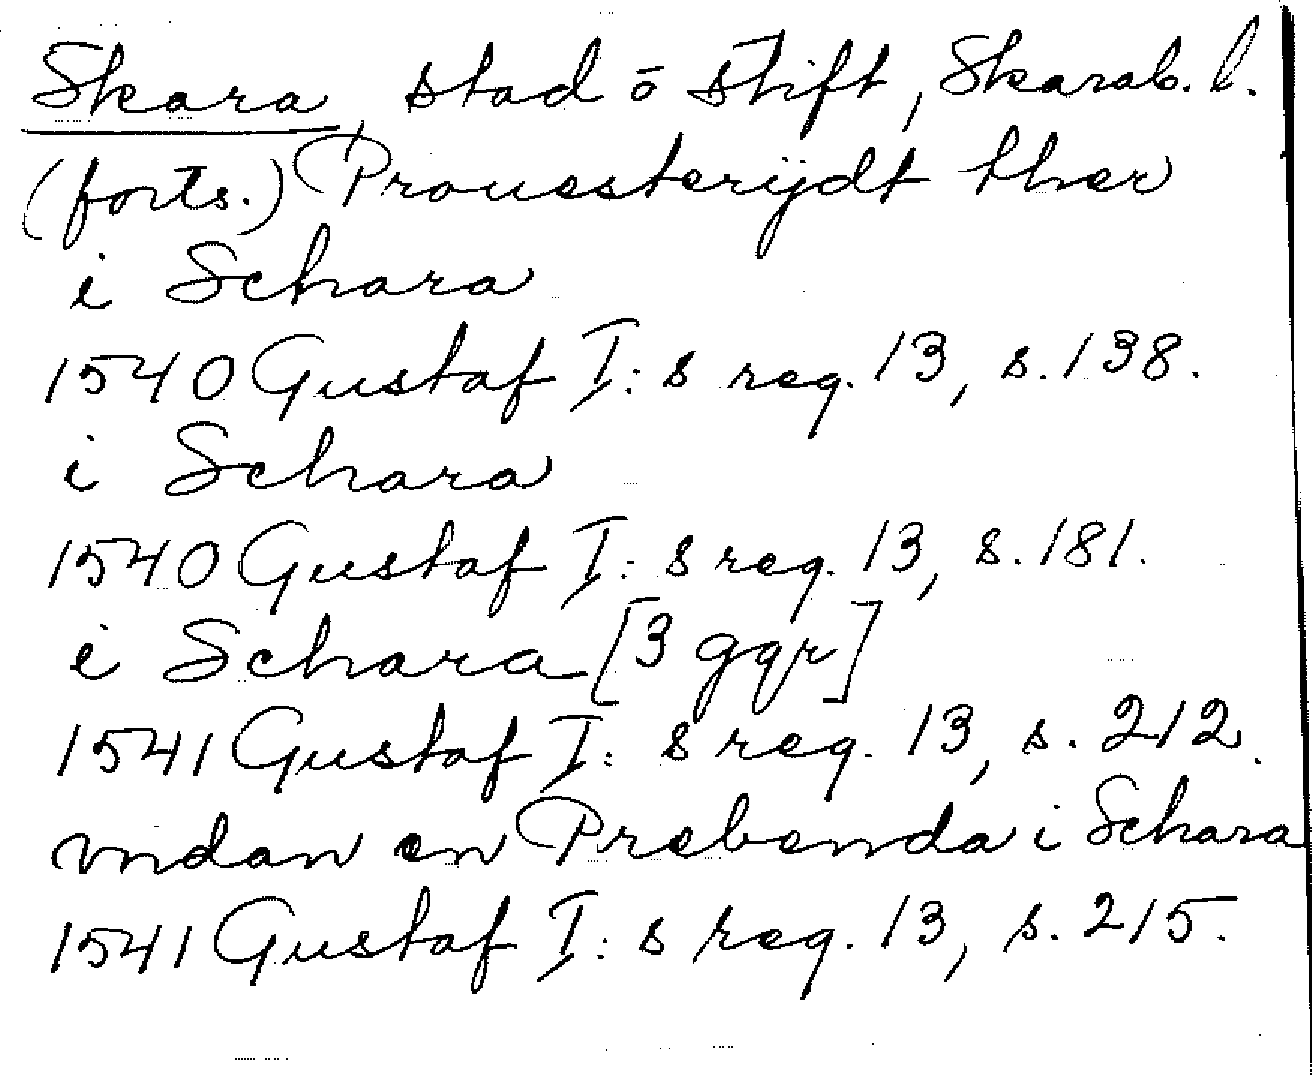 Skara, stad ō stift, Skarab. l.
(forts.) Prouesterijdt ther
i Schara
1540 Gustaf I:s reg. 13, s. 138.
i Schara
1540 Gustaf I:s reg. 13, s. 181.
i Schara [3 ggr]
1541 Gustaf I:s reg. 13, s. 212.
vndan en Prebenda i Schara
1541 Gustaf I:s reg. 13, s. 215.